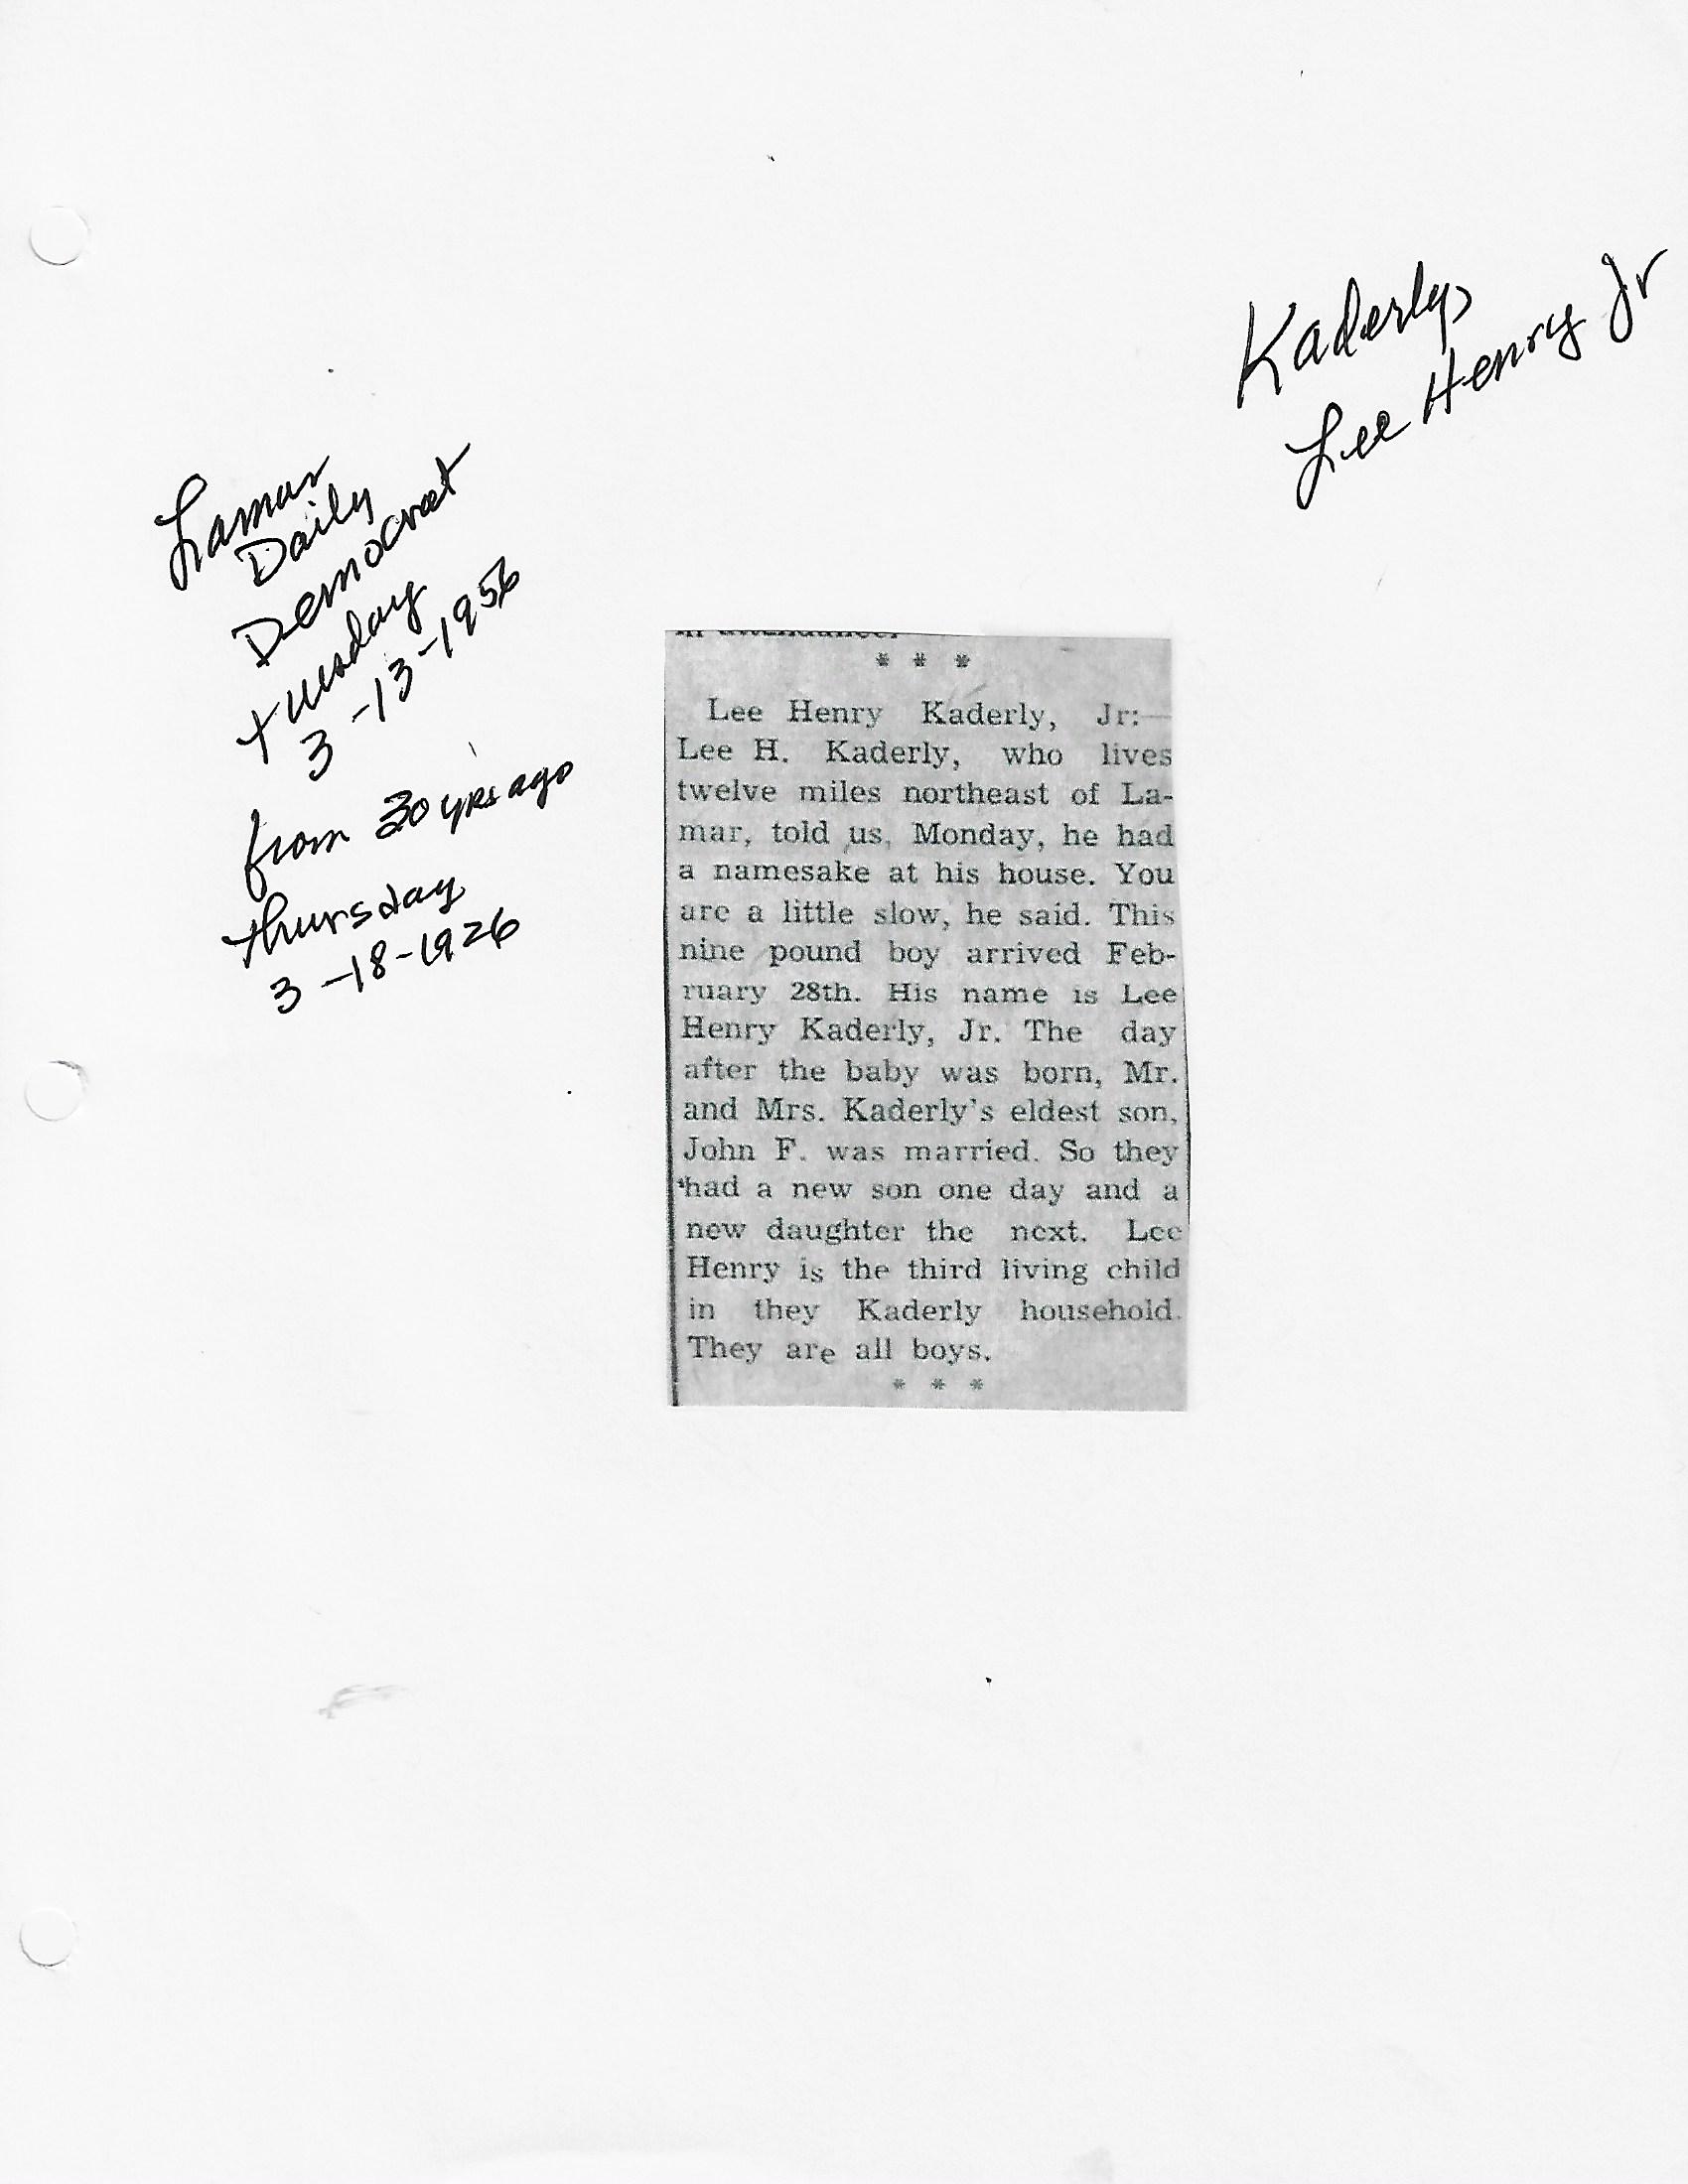 Kaderly,
Lee Henry Jr
Lamar
Daily
Democrat
Tuesday
3-13-1956
from 30 yrs ago
Thursday
3-18-1926
in attendance.
* * *
Lee Henry Kaderly, Jr:—
Lee H. Kaderly, who lives
twelve miles northeast of La-
mar, told us, Monday, he had
a namesake at his house. You
are a little slow, he said. This
nine pound boy arrived Feb-
ruary 28th. His name is Lee
Henry Kaderly, Jr. The day
after the baby was born, Mr.
and Mrs. Kaderly's eldest son,
John F. was married. So they
had a new son one day and a
new daughter the next. Lee
Henry is the third living child
in they Kaderly household.
They are all boys.
* * *